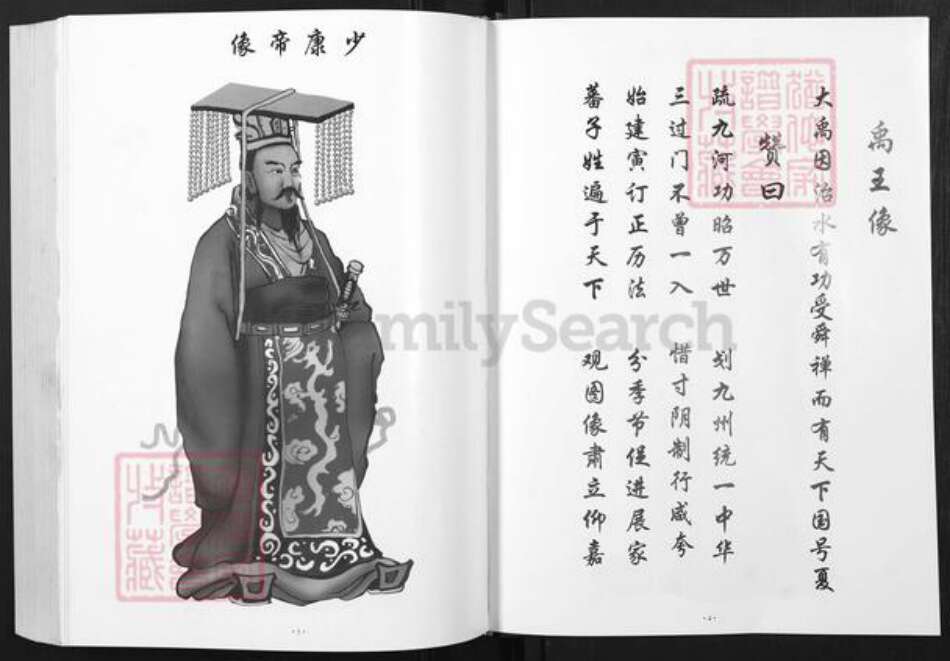 禹王像
大禹因治水有功受舜禅而有天下国号夏
赞曰
疏九河功昭万世 划九州统一中华
三过门不曾一入 惜寸阴制行咸夸
始建寅订正历法 分季节促进展家
蕃子姓遍于天下 观图像肃立仰嘉
·2·
少康帝像
·3·
FamilySearch